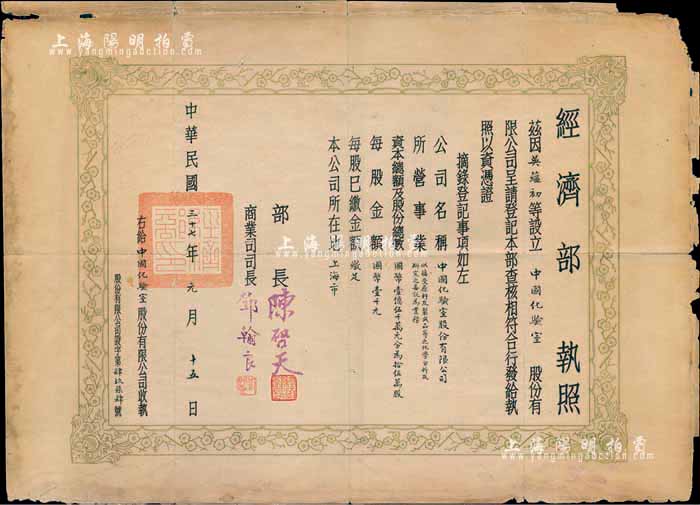 上海陽明拍賣
www.yangmingauction.com
經濟部執照
茲因吳蘊初等設立中國化驗室股份有
限公司呈請登記本部查核相符合行發給執
照以資憑證
摘錄登記事項如左
公司名稱 中國化驗室股份有限公司
所營事業
資本總額及股份總數 國幣壹億伍千萬元分為拾伍萬股
每股金額 國幣壹千元
每股已繳金額 繳足
本公司所在地 上海市
部長 陳啓天
商業司司長 鄧翰良
中華民國三十七年元月十五日
右給中國化驗室股份有限公司收執
股份有限公司設字第肆玖柒肆號
上海陽明拍賣
www.yangmingauction.com
上海陽明拍賣
www.yangmingauction.com